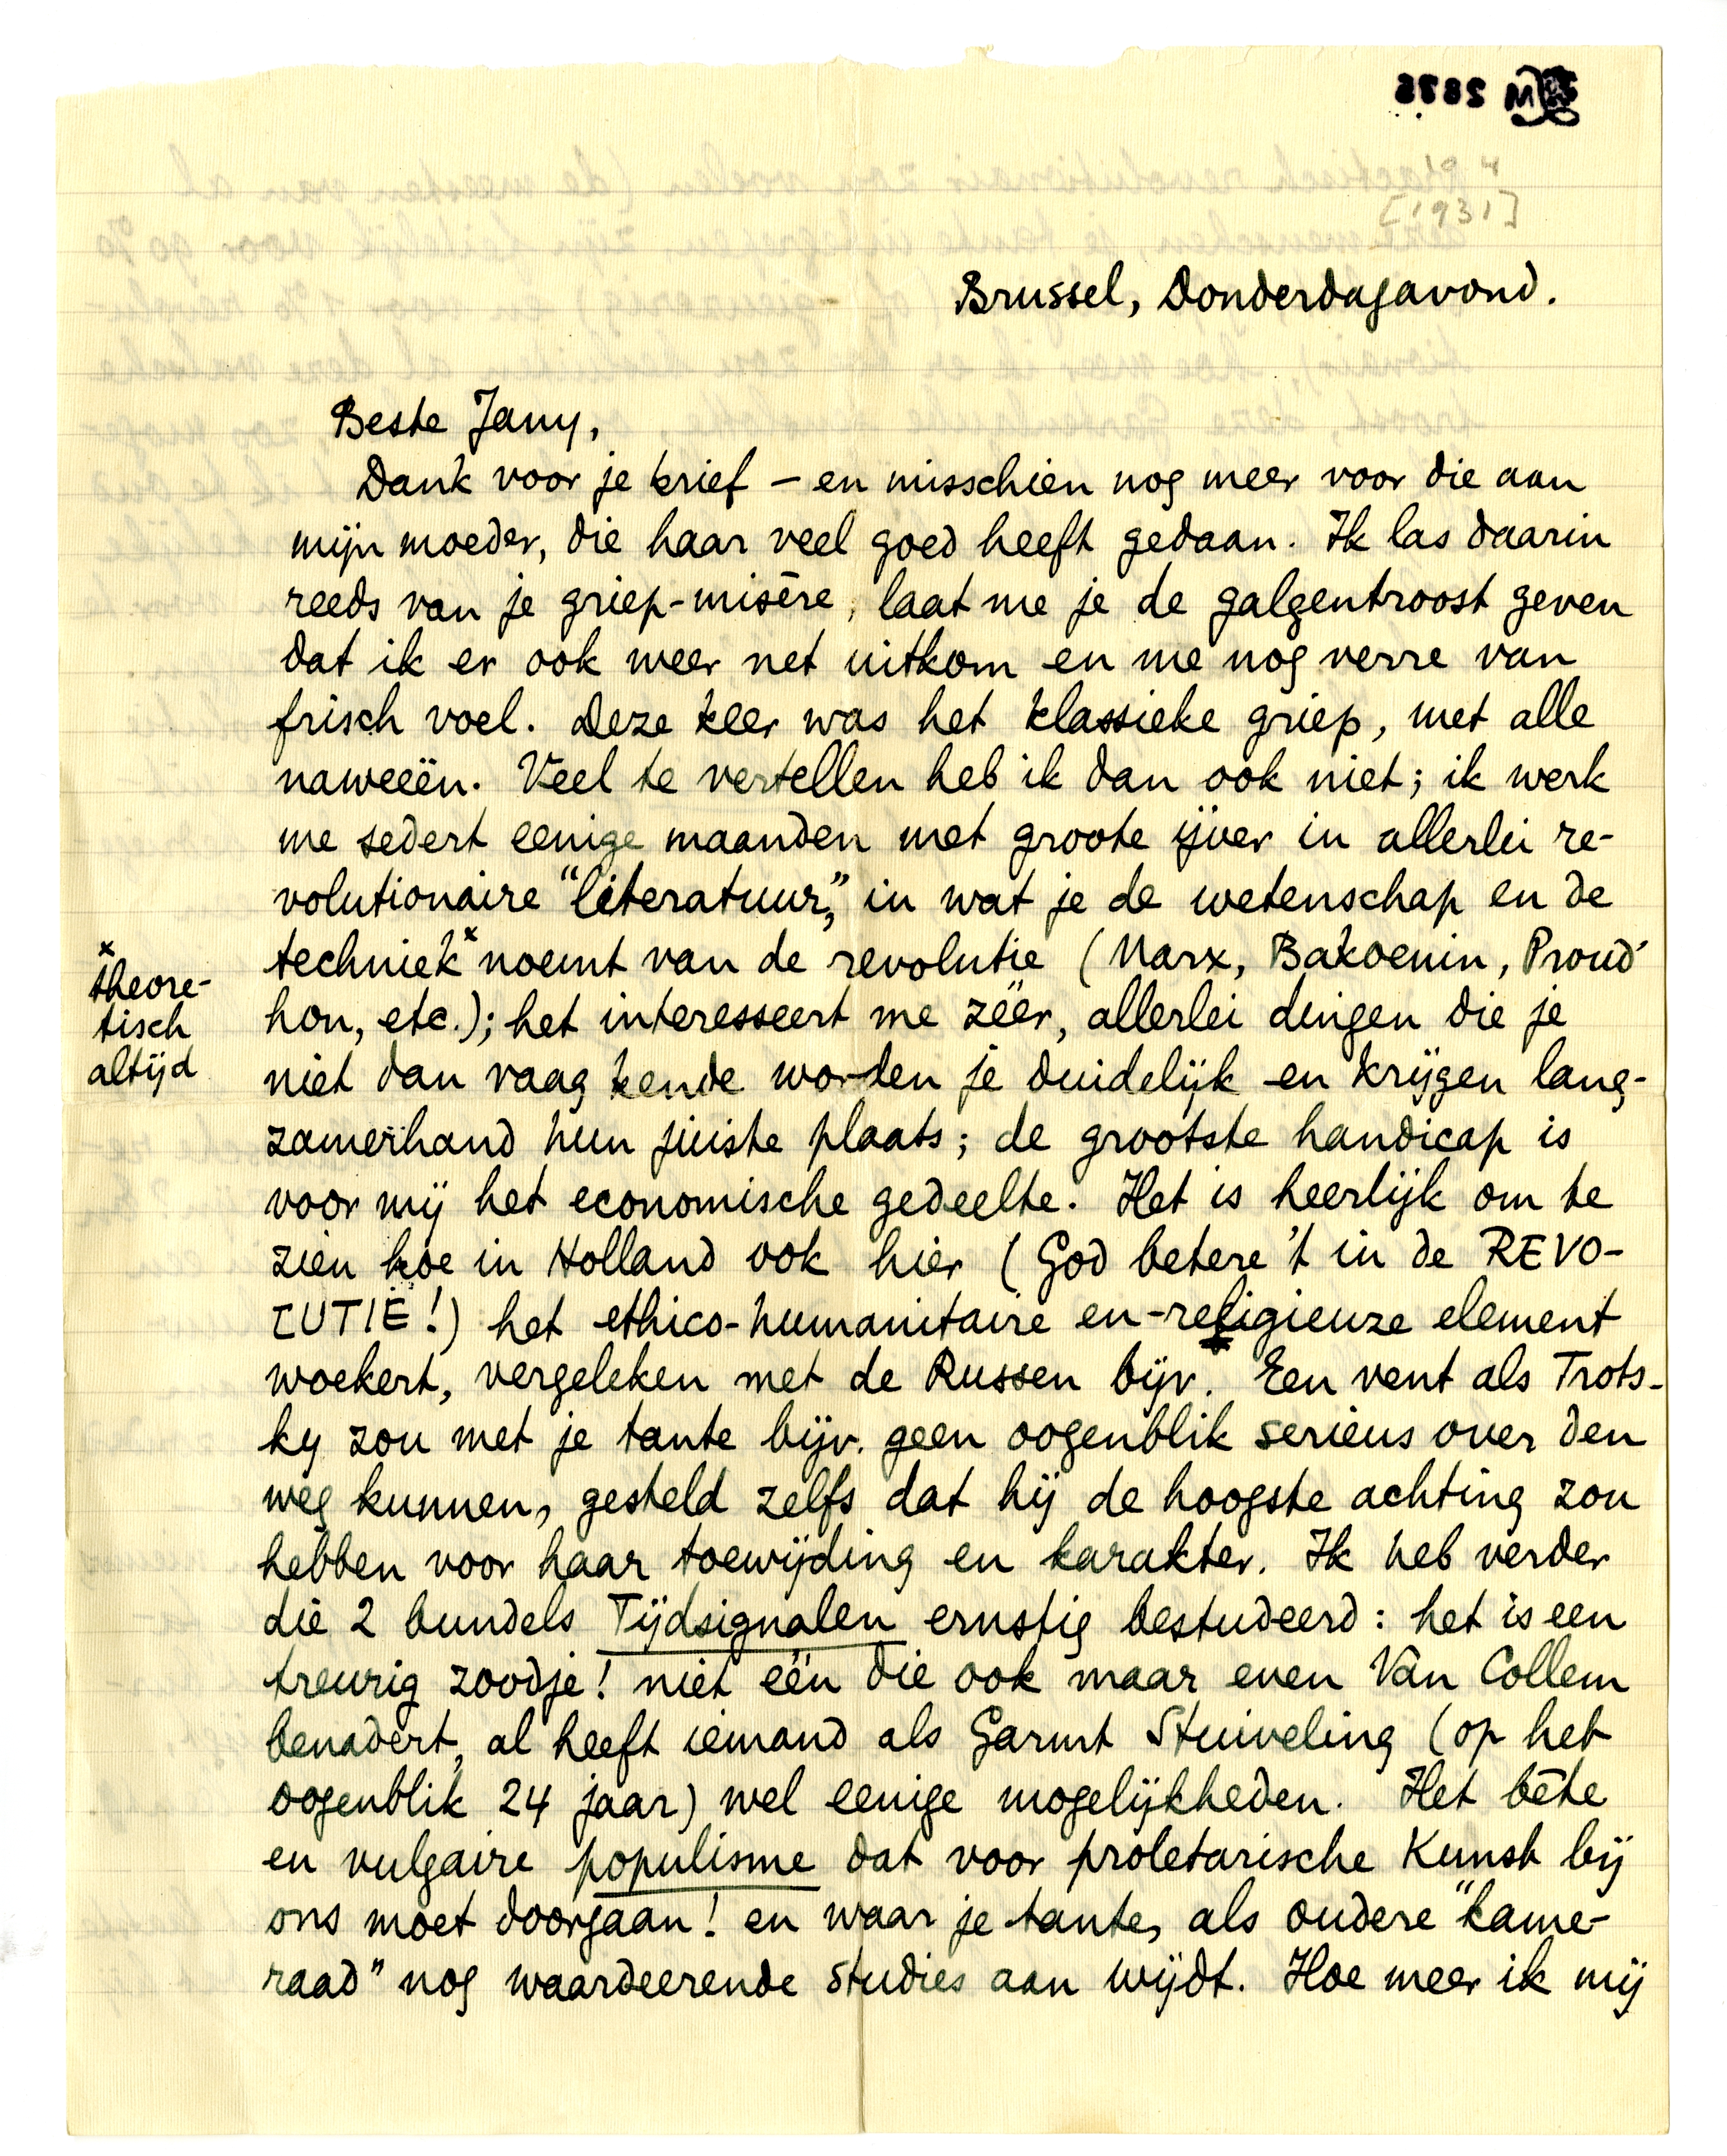 2876
[1931]
Brussel, Donderdagavond.
Beste Jany,
Dank voor je brief – en misschien nog meer voor die aan
mijn moeder, die haar veel goed heeft gedaan. Ik las daarin
reeds van je griep-misère, laat me je de galgentroost geven
dat ik er ook weer net uitkom en me nog verre van
frisch voel. Deze keer was het klassieke griep, met alle
naweeën. Veel te vertellen heb ik dan ook niet; ik werk
me sedert eenige maanden met groote ijver in allerlei re-
volutionaire "literatuur," in wat je de wetenschap en de
techniek× noemt van de revolutie (Marx, Bakoenin, Proud-
hon, etc.); het interesseert me zéér, allerlei dingen die je
niet dan vaag kende worden je duidelijk en krijgen lang-
zamerhand hun juiste plaats; de grootste handicap is
voor mij het economische gedeelte. Het is heerlijk om te
zien hoe in Holland ook hier (God betere 't in de REVO-
LUTIE!) het ethico-humanitaire en-religieuze element
woekert, vergeleken met de Russen bijv. Een vent als Trots-
ky zou met je tante bijv. geen oogenblik serieus over den
weg kunnen, gesteld zelfs dat hij de hoogste achting zou
hebben voor haar toewijding en karakter. Ik heb verder
die 2 bundels Tijdsignalen ernstig bestudeerd: het is een
treurig zoodje! niet één die ook maar even Van Collem
benadert, al heeft iemand als Garmt Stuiveling (op het
oogenblik 24 jaar) wel eenige mogelijkheden. Het bête
en vulgaire populisme dat voor proletarische Kunst bij
ons moet doorgaan! en waar je tante, als oudere "kame-
raad" nog waardeerende studies aan wijdt. Hoe meer ik mij
×
theore-
tisch
altijd